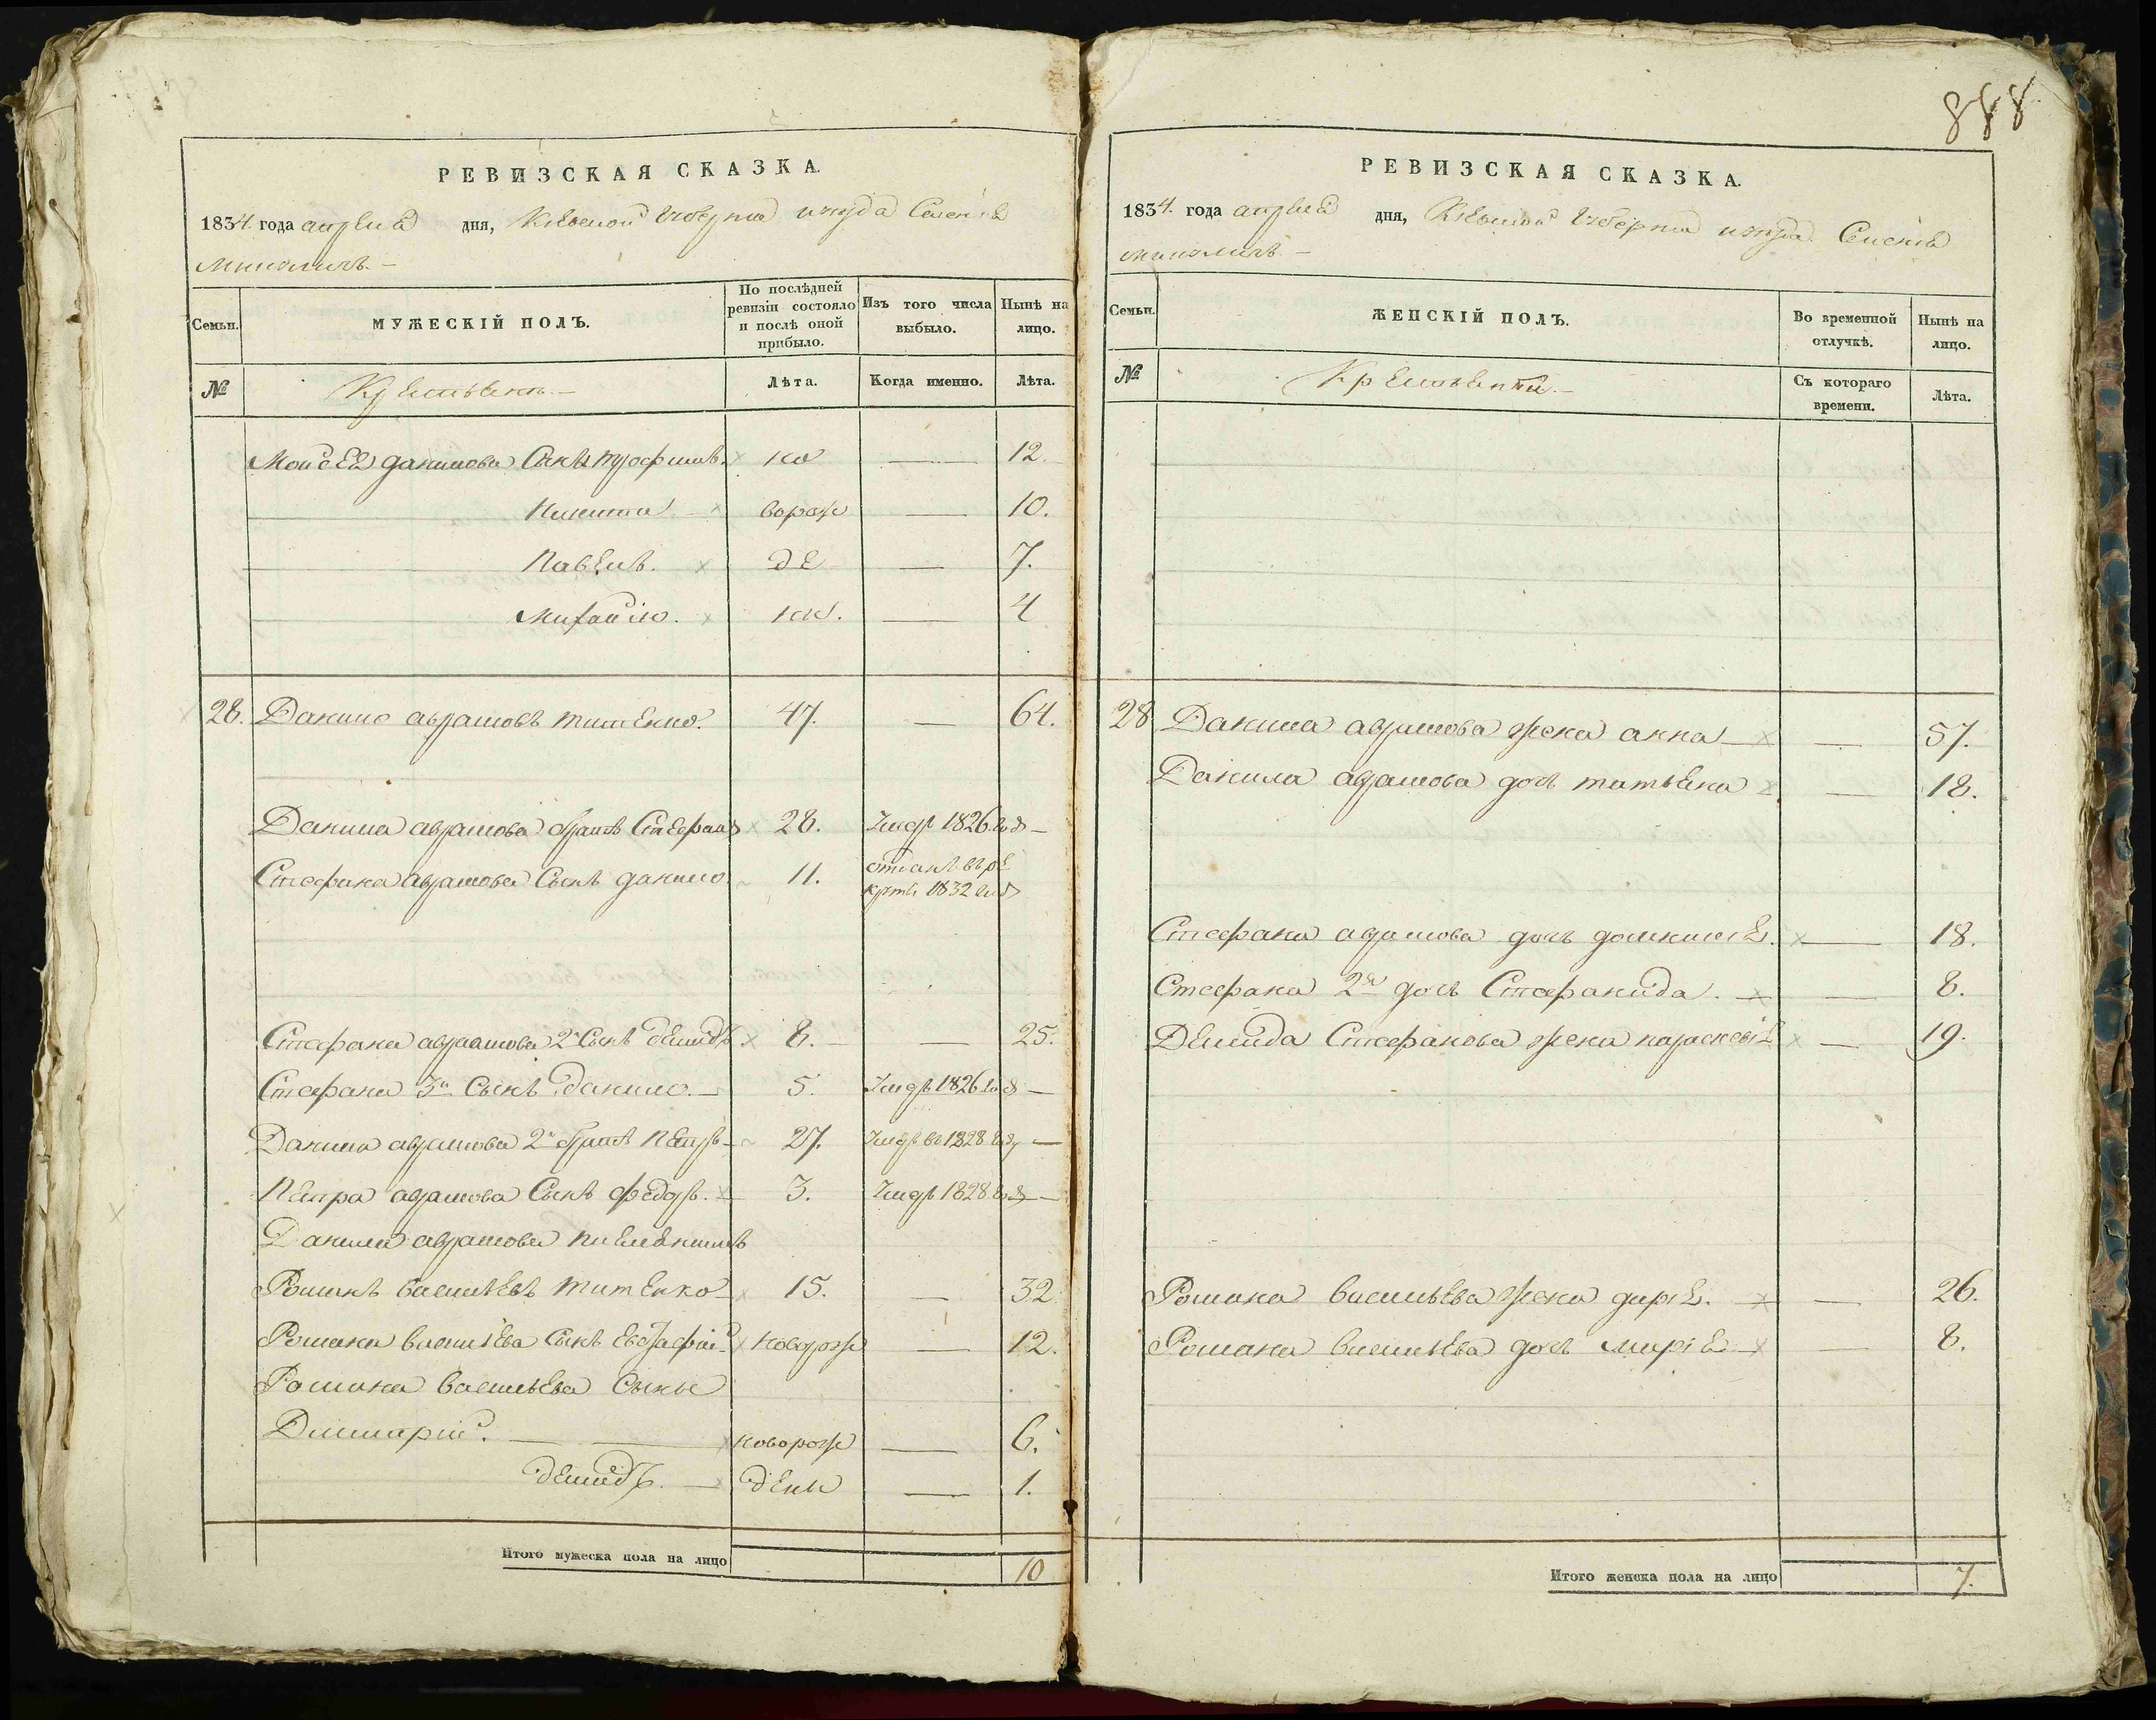 888
РЕВИЗСКАЯ СКАЗКА.
1834. года апреля дня, Кіевской Губерніи уезда Селенія
РЕВИЗСКАЯ СКАЗКА.
1834. года апреля дня, Кіевской Губерніи уезда Селенія
Семьи.
МУЖЕСКІЙ ПОЛЪ.
По послѣдней ревизіи состояло и послѣ оной прибыло.
Изъ того числа выбыло.
Нынѣ на лицо.
№
Крестьяне.—
Лѣта.
Когда именно.
Лѣта.
Моисея данилова Сынъ Трофимъ. но — 12.
Никита ворож — 10.
Павелъ. де — 7.
Михайло. нн. — 4
28. Данило аврамовъ титенко. 47. — 64.
Данила аврамова братъ Стефанъ 28. Умеръ 1826 год —
Стефана аврамова Сынъ данило. 11. отданъ въ ре
крты 1832 год
Стефана авраамова 2й Сынъ демидъ. 8. — 25.
Стефана 3й Сынъ данило. 5. Умеръ 1826 год —
Данила аврамова 2й братъ Петръ 27. Умеръ въ 1828 году —
Петра аврамова Сынъ федоръ. 3. Умеръ 1828 год —
Данила аврамова племенникъ
Романъ васильевъ титенко 15. — 32
Романа васильева Сынъ Евстафій новорож — 12.
Романа васильева Сыны
Димитрій. новорож — 6.
демидъ. дены — 1.
Итого мужеска пола на лицо 10
Семьи.
ЖЕНСКІЙ ПОЛЪ.
Во временной отлучкѣ.
Нынѣ на лицо.
№
Крестьянки.—
Съ котораго времени.
Лѣта.
28 Данила аврамова жена анна — 57.
Данила аврамова дочь татьяна — 18.
Стефана аврамова дочь домникия. — 18.
Стефана 2я дочь Стефанида. — 8.
Демида Стефанова жена параскевія — 19.
Романа васильева жена дарія. — 26.
Романа васильева дочь марія — 8.
Итого женска пола на лицо 7.